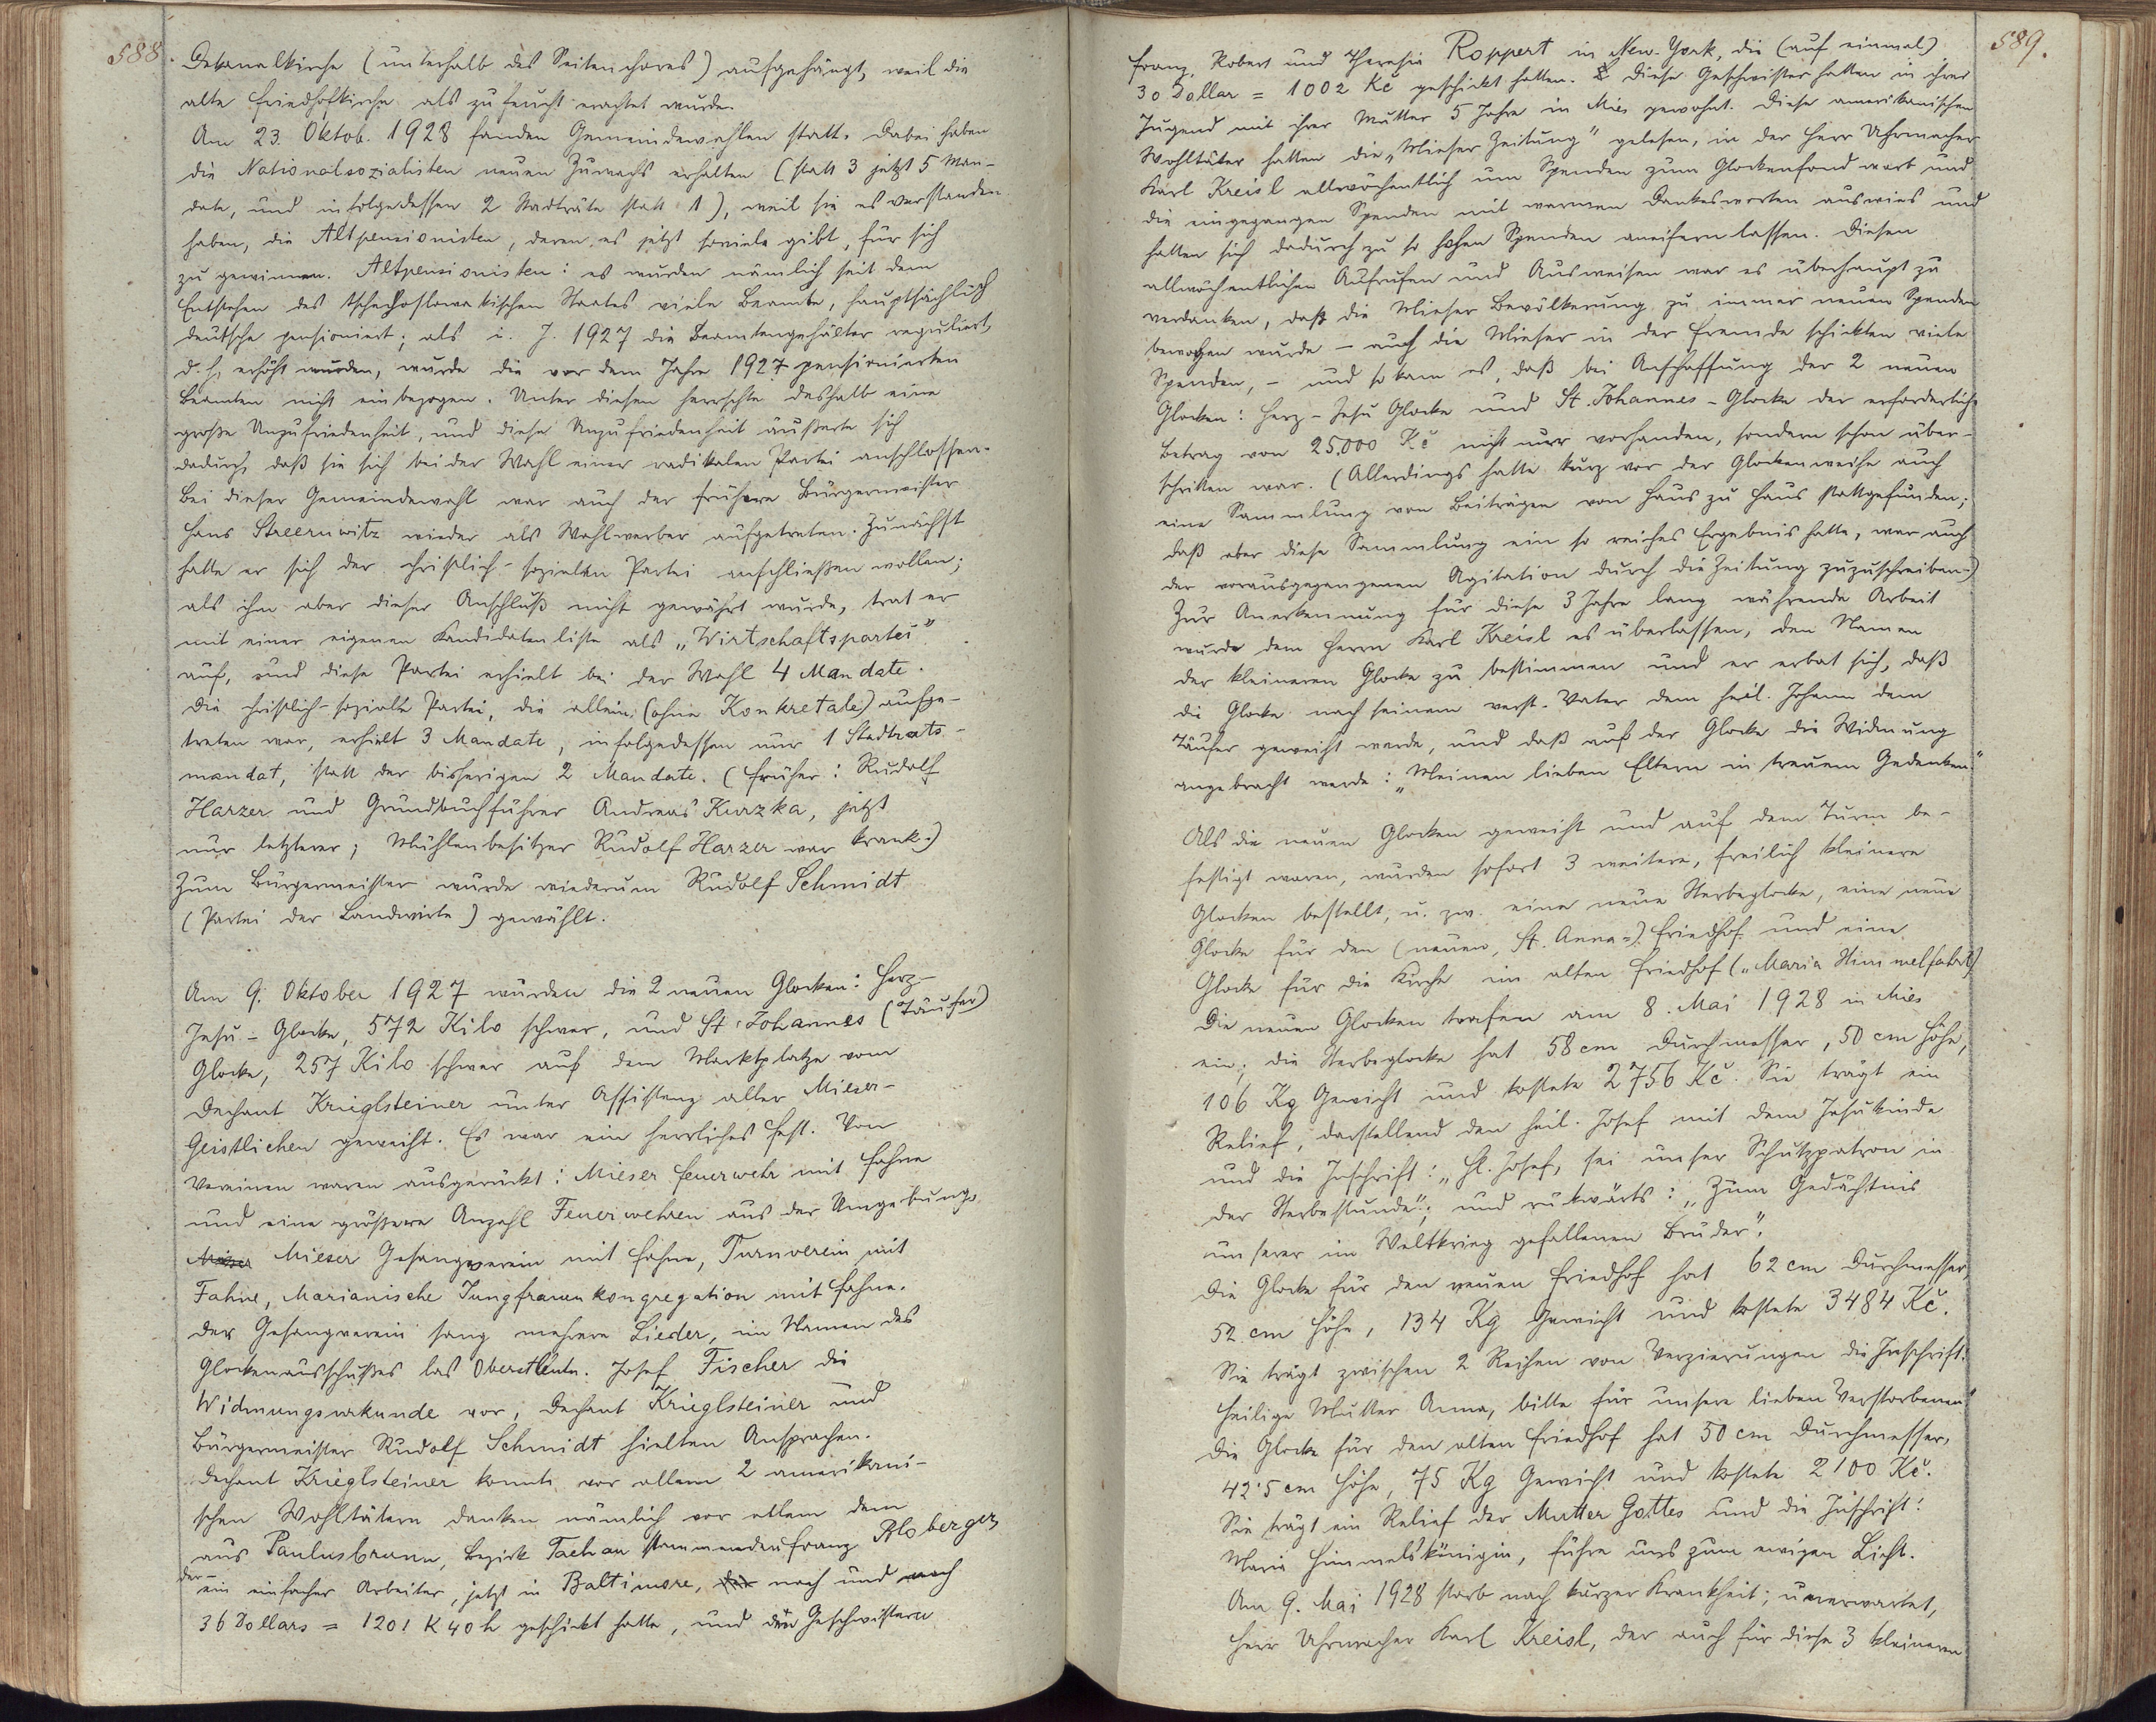 588.
Dekanalkirche (unterhalb des Seitenchores) aufgehängt, weil die
alte Friedhofkirche als zu feucht erachtet wurde.
Am 23. Oktob. 1928 fanden Gemeindewahlen statt. Dabei haben
die Nationalsozialisten neuen Zuwachs erhalten (statt 3 jetzt 5 Man-
date, und infolgedessen 2 Stadträte statt 1), weil sie es verstanden
haben, die Altpensionisten, deren es jetzt soviele gibt, für sich
zu gewinnen. Altpensionisten: es wurden nämlich seit dem
Entstehen des tschechoslowakischen Staates viele Beamte, hauptsächlich
deutsche pensioniert; als i. J. 1927 die Beamtengehälter reguliert,
d. h. erhöht wurden, wurde die vor dem Jahre 1927 pensionierten
Beamten nicht einbezogen. Unter diesen herrschte deshalb eine
große Unzufriedenheit, und diese Unzufriedenheit äußerte sich
dadurch, daß sie sich bei der Wahl einer radikalen Partei anschlossen.
Bei dieser Gemeindewahl war auch der frühere Bürgermeister
Hans Streernwitz wieder als Wahlwerber aufgetreten. Zunächst
hatte er sich der christlich-sozialen Partei anschließen wollen;
als ihm aber dieser Anschluß nicht gewährt wurde, trat er
mit einer eigenen Kandidatenliste als „Wirtschaftspartei"
auf, und diese Partei erhielt bei der Wahl 4 Mandate.
Die christlich-soziale Partei, die allein (ohne Konkretale) aufge-
treten war, erhielt 3 Mandate, infolgedessen nur 1 Stadtrats-
mandat, statt der bisherigen 2 Mandate. (früher: Rudolf
Harzer und Grundbuchführer Andreas Kurzka, jetzt
nur letzterer; Mühlenbesitzer Rudolf Harzer war krank.)
Zum Bürgermeister wurde wiederum Rudolf Schmidt
(Partei der Landwirte) gewählt.
Am 9. Oktober 1927 wurden die 2 neuen Glocken: Herz-
Jesu-Glocke, 572 Kilo schwer, und St. Johannes (Täufer)
Glocke, 257 Kilo schwer auf dem Marktplatze vom
Dechant Krieglsteiner unter Assistenz aller Mieser-
Geistlichen geweiht. Es war ein herrliches Fest. Von
Vereinen waren ausgerückt: Mieser Feuerwehr mit Fahne
und eine größere Anzahl Feuerwehren aus der Umgebung,
Mieser Mieser Gesangverein mit Fahne, Turnverein mit
Fahne, Marianische Jungfrauenkongregation mit Fahne.
Der Gesangverein sang mehrere Lieder, im Namen des
Glockenausschußes las Oberstleutn. Josef Fischer die
Widmungsurkunde vor, Dechant Krieglsteiner und
Bürgermeister Rudolf Schmidt hielten Ansprachen.
Dechant Krieglsteiner konnte vor allem 2 amerikani-
schen Wohltätern danken nämlich vor allem dem
aus Paulusbrunn, Bezirk Tachau stammenden Franz Ploberger,
der- ein einfacher Arbeiter, jetzt in Baltimore, der nach und nach
36 Dollars = 1201 K 40 h geschickt hatte, und den Geschwistern
589.
Franz, Robert und Theresia Roppert in New-York, die (auf einmal)
30 Dollar = 1002 Kč geschickt hatten. Diese Geschwister hatten in ihrer
Jugend mit ihrer Mutter 5 Jahre in Mies gewohnt. Diese amerikanischen
Wohltäter hatten die „Mieser Zeitung" gelesen, in der Herr Uhrmacher
Karl Kreisl allwöchentlich um Spenden zum Glockenfond warb und
die eingegangen Spenden mit warmen Dankesworten auswies und
hatten sich dadurch zu so hohen Spenden aneifern lassen. Diesen
allwöchentlichen Aufrufen und Ausweisen war es überhaupt zu
verdanken, daß die Mieser Bevölkerung zu immer neuen Spenden
bewogen wurde – auch die Mieser in der Fremde schickten viele
Spenden, – und so kam es, daß bei Anschaffung der 2 neuen
Glocken: Herz-Jesu Glocke und St. Johannes-Glocke der erforderliche
Betrag von 25.000 Kč nicht nur vorhanden, sondern schon über-
schritten war. (Allerdings hatte kurz vor der Glockenweihe auch
eine Sammlung von Beiträgen von Haus zu Haus stattgefunden;
daß aber diese Sammlung ein so reiches Ergebnis hatte, war auch
der vorausgegangenen Agitation durch die Zeitung zuzuschreiben.)
Zur Anerkennung für diese 3 Jahre lang währende Arbeit
wurde dem Herrn Karl Kreisl es überlassen, den Namen
der kleineren Glocke zu bestimmen und er erbat sich, daß
die Glocke nach seinem verst. Vater dem heil. Johann dem
Täufer geweiht werde, und daß auf der Glocke die Widmung
angebracht werde: „Meinen lieben Eltern in treuem Gedenken."
Als die neuen Glocken geweiht und auf dem Turm be-
festigt waren, wurden sofort 3 weitere, freilich kleinere
Glocken bestellt, u. zw. eine neue Sterbeglocke, eine neue
Glocke für den (neuen, St. Anna-) Friedhof und eine
Glocke für die Kirche im alten Friedhof („Maria Himmelfahrt)
Die neuen Glocken trafen am 8. Mai 1928 in Mies
ein; die Sterbeglocke hat 58 cm Durchmesser, 50 cm Höhe,
106 Kg Gewicht und kostete 2756 Kč. Sie trägt ein
Relief, darstellend den heil. Josef mit dem Jesukinde
und die Inschrift: „Hl. Josef, sei unser Schutzpatron in
der Sterbestunde"; und rückwärts: „Zum Gedächtnis
unserer im Weltkrieg gefallenen Brüder".
Die Glocke für den neuen Friedhof hat 62 cm Durchmesser,
52 cm Höhe, 134 Kg Gewicht und kostete 3484 Kč.
Sie trägt zwischen 2 Reihen von Verzierungen die Inschrift:
Heilige Mutter Anna, bitte für unsere lieben Verstorbenen"
Die Glocke für den alten Friedhof hat 50 cm Durchmesser,
42'5 cm Höhe, 75 Kg Gewicht und kostete 2100 Kč.
Sie trägt ein Relief der Mutter Gottes und die Inschrift:
Maria Himmelskönigin, führe uns zum ewigen Licht.
Am 9. Mai 1928 starb nach kurzer Krankheit, unerwartet,
Herr Uhrmacher Karl Kreisl, der auch für diese 3 kleineren